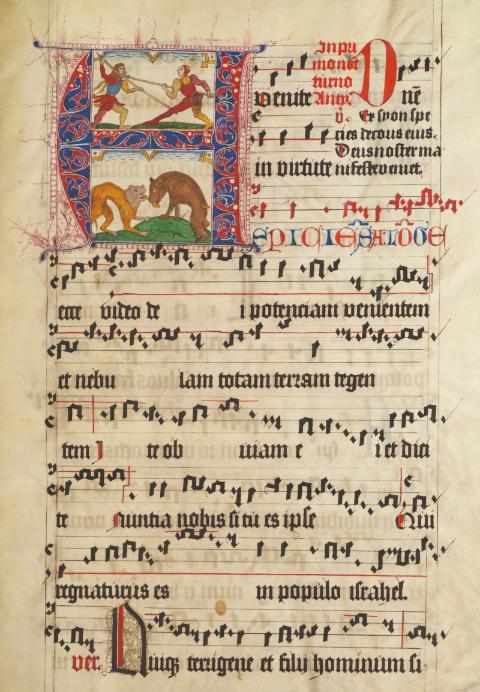 In pri
mo noct
turno D nē
venite
v. Ex syon spe
cies decoris eius.
Deus noster ma
in virtute nifeste veniet.
ASPICIENS A LOGE
ecce video de i potenciam venientem
et nebu lam totam terram tegen
tem I te ob uiam e i et dici
te nuntia nobis si tu es ipse Qui
regnaturus es in populo israhel.
ver. Quiq; terrigene et filij hominum si